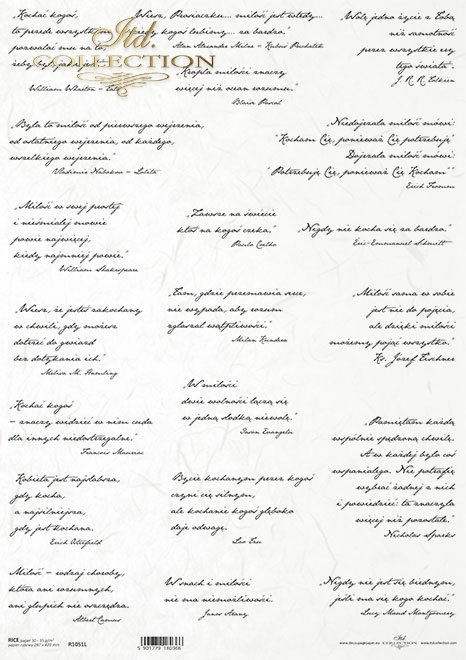 „Kochać kogoś,
to przede wszystkim
pozwalać mu na to,
żeby był jaki jest."
William Wharton – Tato
„Wiesz, Prosiaczku... miłość jest wtedy...
kiedy kogoś lubimy... za bardzo."
Alan Alexander Milne – Kubuś Puchatek
„Kropla miłości znaczy
więcej niż ocean rozumu."
Blaise Pascal
„Wolę jedno życie z Tobą
niż samotność
przez wszystkie ery
tego świata".
J. R. R. Tolkien
Itd.
COLLECTION
„Była to miłość od pierwszego wejrzenia,
od ostatniego wejrzenia, od każdego,
wszelkiego wejrzenia."
Vladimir Nabokov – Lolita
„Niedojrzała miłość mówi:
"Kocham Cię, ponieważ Cię potrzebuję"
Dojrzała miłość mówi:
"Potrzebuję Cię, ponieważ Kocham""
Erich Fromm
„Miłość w swej prostej
i nieśmiałej mowie
powie najwięcej,
kiedy najmniej powie."
William Shakespeare
„Zawsze na świecie
ktoś na kogoś czeka."
Paulo Coelho
„Nigdy nie kocha się za bardzo."
Eric-Emmanuel Schmitt
„Wiesz, że jesteś zakochany
w chwili, gdy możesz
dotrzeć do gwiazd
bez dotykania ich."
Melisa M. Hamling
„Tam, gdzie przemawia serce,
nie wypada, aby rozum
zgłaszał wątpliwości."
Milan Kundera
„Miłość sama w sobie
jest nie do pojęcia,
ale dzięki miłości
możemy pojąć wszystko."
Ks. Józef Tischner
„W miłości
dwie wolności łączą się
w jedną słodką niewolę."
Susan Evangelis
„Kochać kogoś
– znaczy widzieć w nim cuda
dla innych niedostrzegalne."
Francois Mauriac
„Pamiętam każdą
wspólnie spędzoną chwilę.
A w każdej było coś
wspaniałego. Nie potrafię
wybrać żadnej z nich
i powiedzieć: ta znaczyła
więcej niż pozostałe."
Nicholas Sparks
Kobieta jest najsłabsza,
gdy kocha,
a najsilniejsza,
gdy jest kochana.
Erich Osterfield
Bycie kochanym przez kogoś
czyni cię silnym,
ale kochanie kogoś głęboko
daje odwagę.
Lao Tzu
Miłość – rodzaj choroby,
która ani rozumnych,
ani głupich nie oszczędza.
Albert Camus
W snach i miłości
nie ma niemożliwości.
Janos Arany
„Nigdy nie jest się biednym,
jeśli ma się kogo kochać."
Lucy Maud Montgomery
RICE paper 30 - 35 g/m²
papier ryżowy 297 x 420 mm
R1051L
5 901779 180366
www.decoupagepaper.eu
Itd.
COLLECTION
www.itdcollection.com